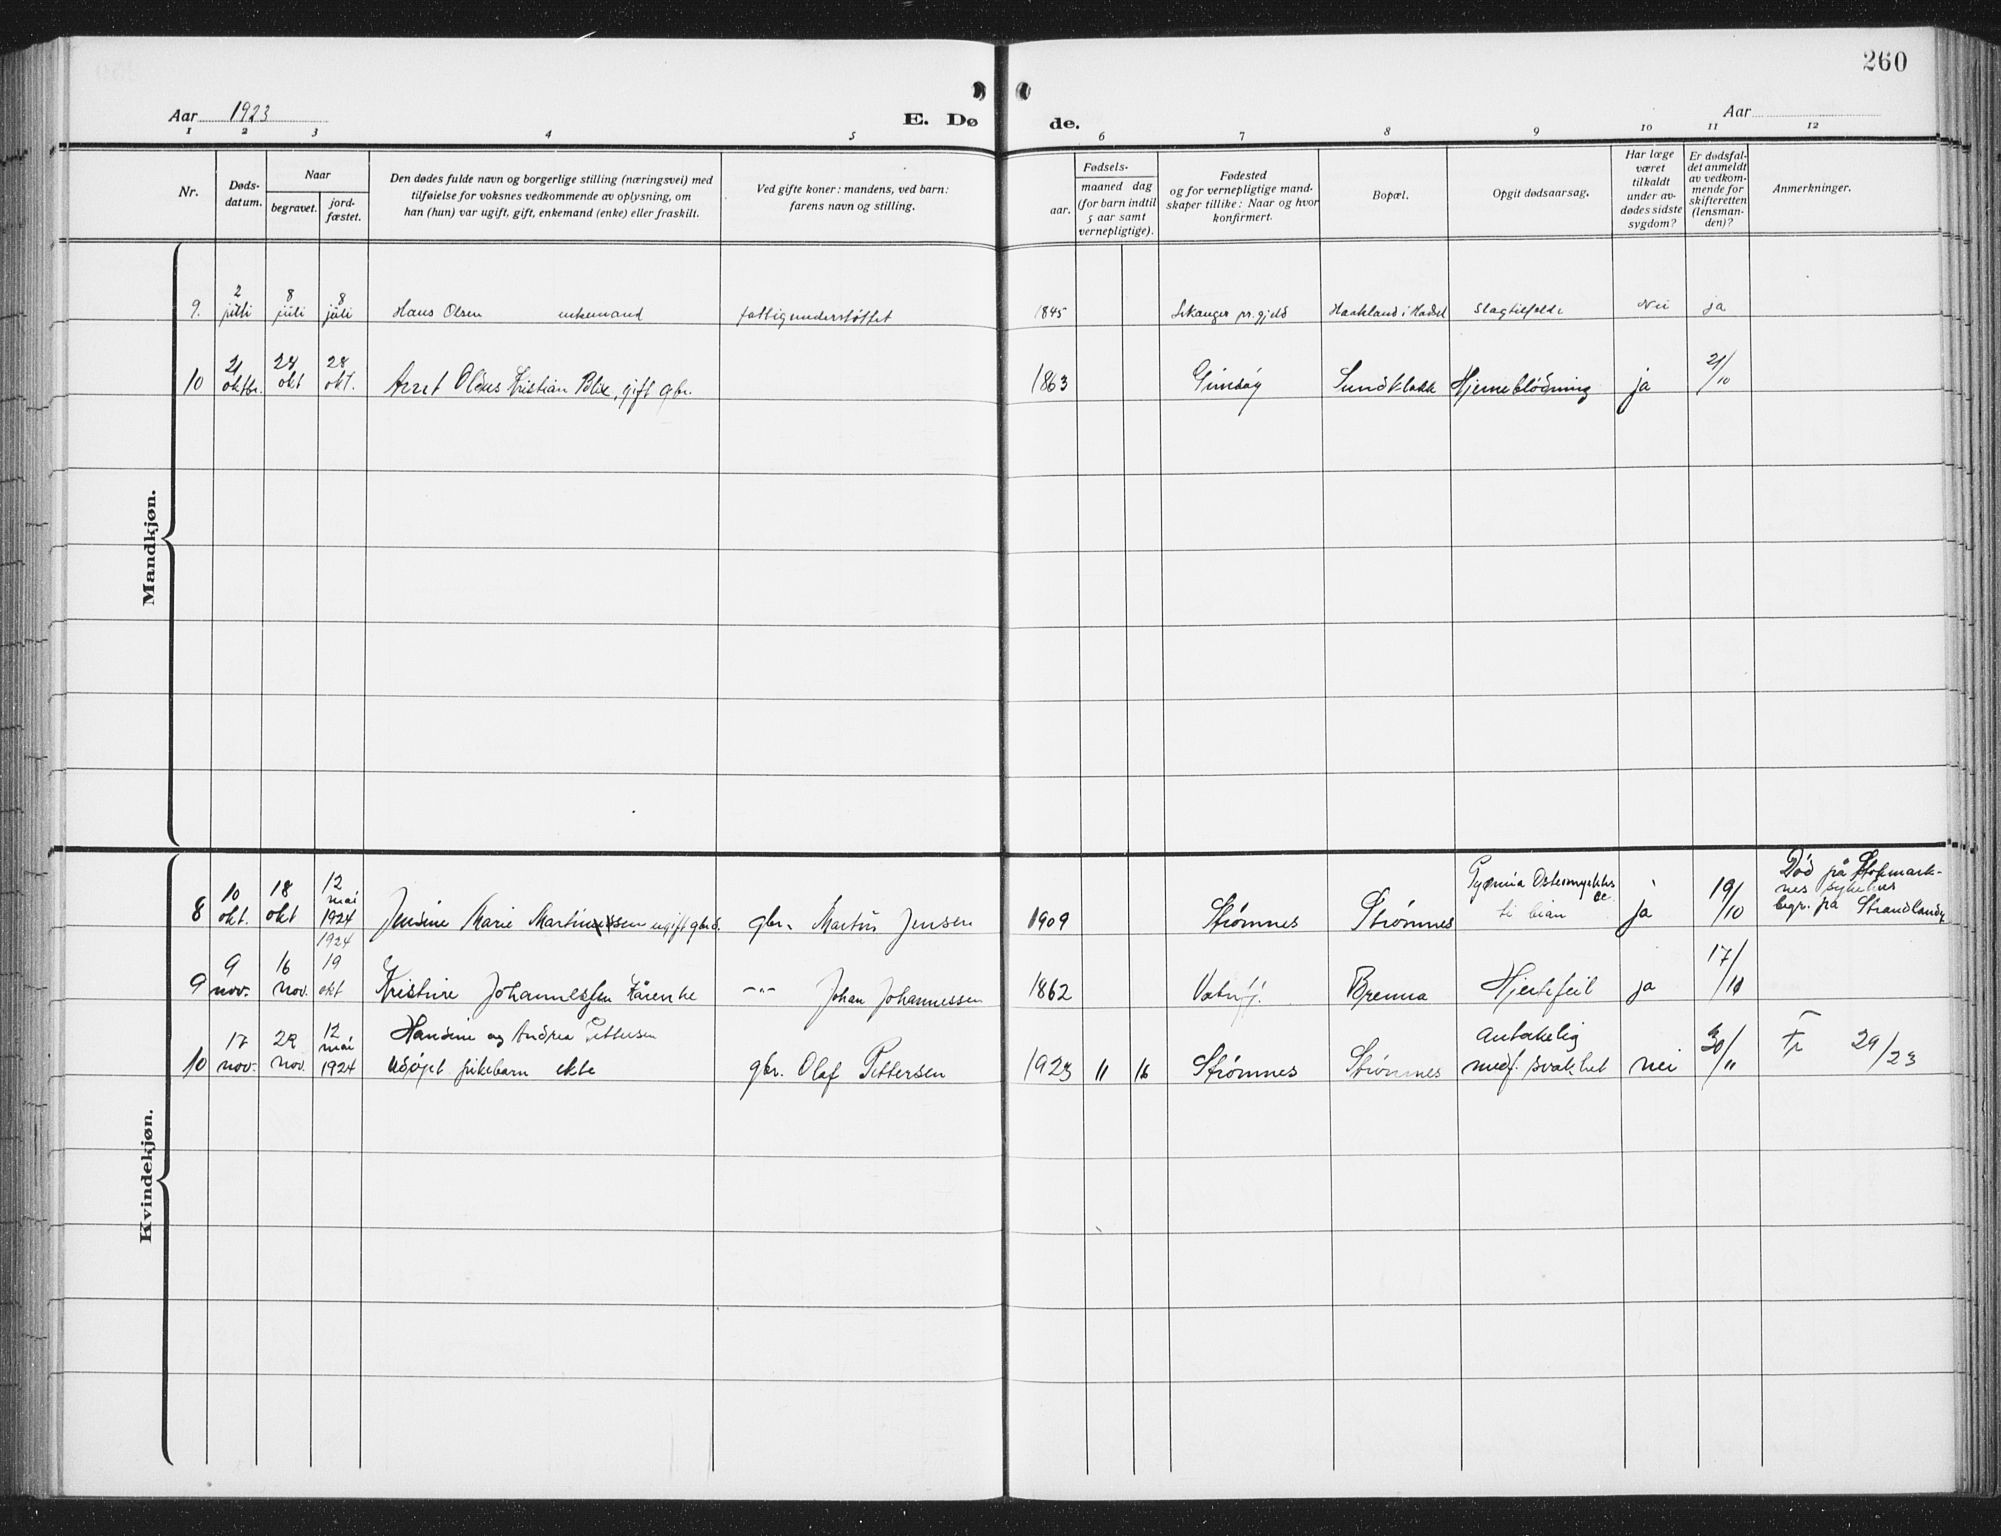 260
Aar 1923
E. Dø de.
Aar
1 2 3 4 5 6 7 8 9 10 11 12
Nr.
Døds-
datum.
Naar
begravet.
jord-
fæstet.
Den dødes fulde navn og borgerlige stilling (næringsvei) med
tilføielse for voksnes vedkommende av oplysning, om
han (hun) var ugift, gift, enkemand (enke) eller fraskilt.
Ved gifte koner: mandens, ved barn:
farens navn og stilling.
Fødsels-
aar.
maaned dag
(for barn indtil
5 aar samt
vernepligtige).
Fødested
og for vernepligtige mand-
skaper tillike: Naar og hvor
konfirmert.
Bopæl.
Opgit dødsaarsag.
Har læge
været
tilkaldt
under av-
dødes sidste
sygdom?
Er dødsfal-
det anmeldt
av vedkom-
mende for
skifteretten
(lensman-
den)?
Anmerkninger.
Mandkjøn.
2 8 8
9. juli juli juli Hans Olsen enkemand fattigunderstøttet 1845 Lekanger pr.gjeld Haakland i Hadsel Slagtilfelde Nei ja
21 28 28 21/10
10 oktbr. okt okt. Olaus Kristian Blix, gift gbr. 1863 Gimsøy Sundklakk Hjerneblødning ja
Kvindekjøn.
10 18 12 mai Osteomyelitis 19/10 Død på Stokmark-
nes sykehus
8 okt. okt 1924 Jensine Marie Martinussen ugift gbrd. gbr. Martin Jensen 1909 Strømnes Strømnes ja begr. på Strandlandy
1924
9 16 19 17/
9 nov. nov. okt Kristine Johannessen kårenke -"- Johan Johannessen 1862 Brenna Hjertefeil ja
17 22 12 mai Hansine og Andrea Pettersen antakelig 30/11 Fr 29/23
10 nov. nov. 1924 udøpt pikebarn ekte gbr. Olaf Pettersen 1923 11 16 Strømnes Strømnes medf. svakhet nei